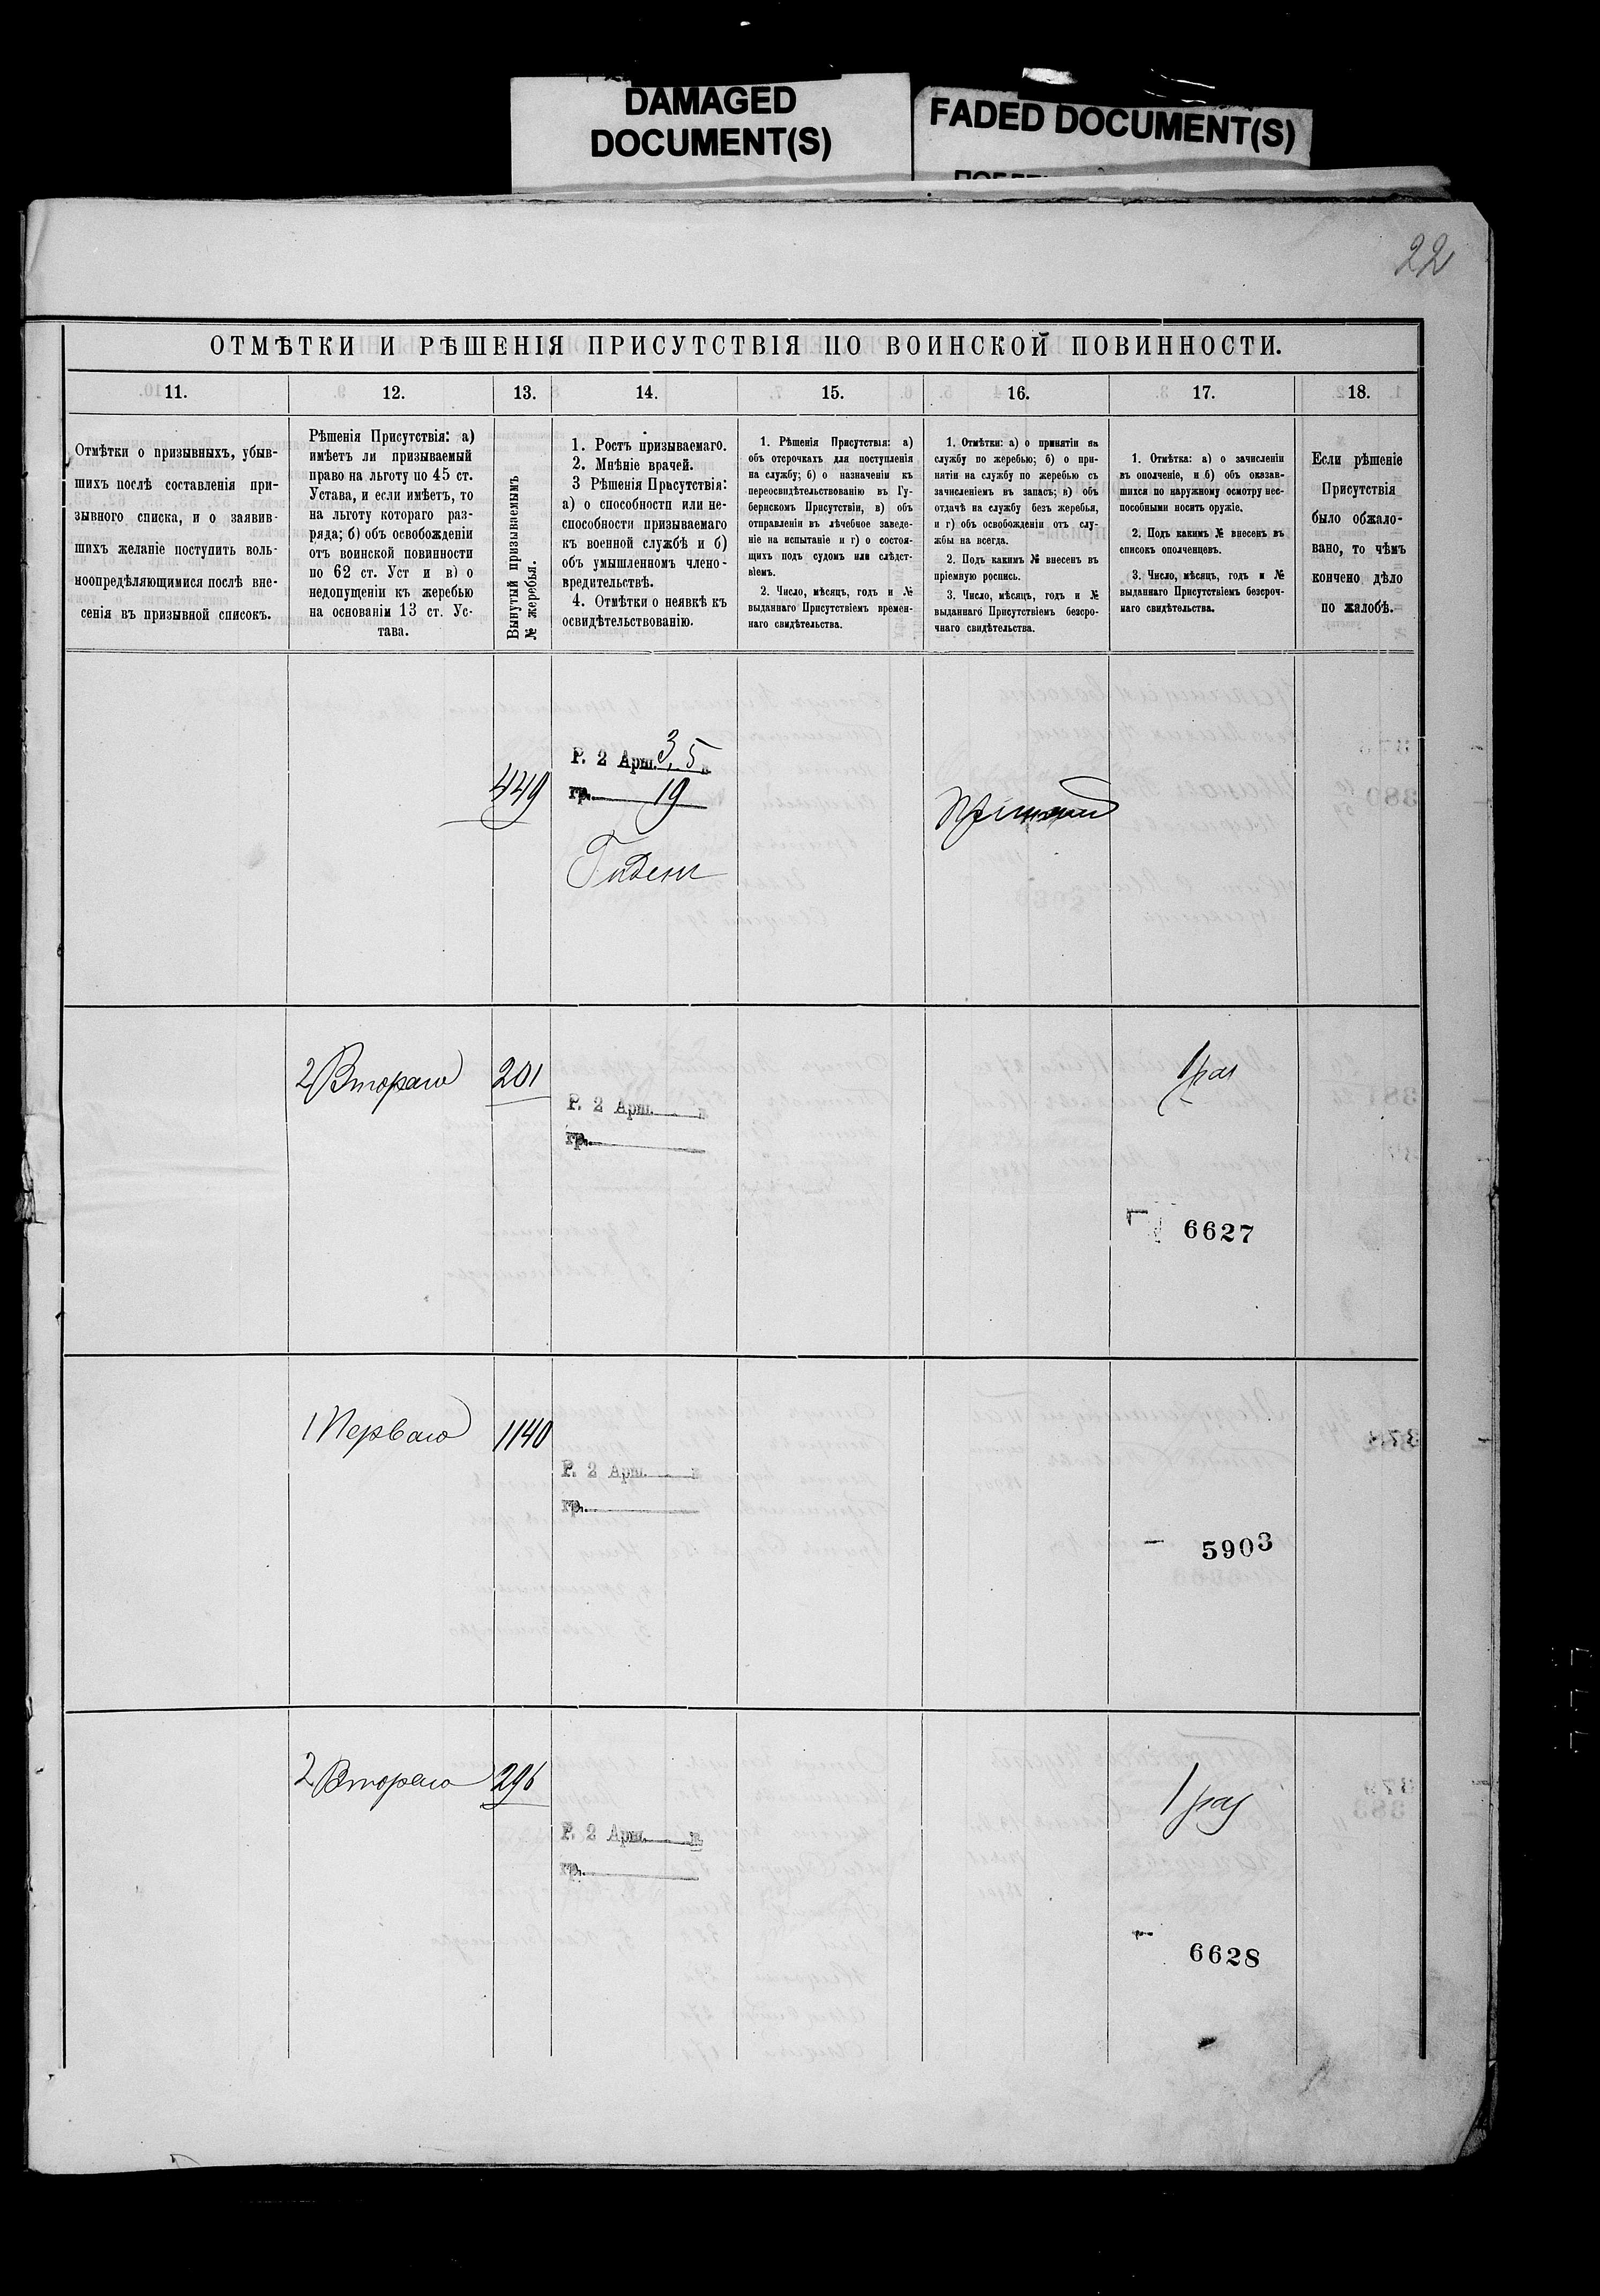 DAMAGED
DOCUMENT(S)
FADED DOCUMENT(S)
22
ОТМѢТКИ И РѢШЕНІЯ ПРИСУТСТВІЯ ПО ВОИНСКОЙ ПОВИННОСТИ.
11.
12.
13.
14.
15.
16.
17.
18.
Отмѣтки о призывныхъ, убыв-
шихъ послѣ составленія при-
зывного списка, и о заявив-
шихъ желаніе поступить воль-
ноопредѣляющимися послѣ вне-
сенія въ призывной списокъ.
Рѣшенія Присутствія: а)
имѣетъ ли призываемый
право на льготу по 45 ст.
Устава, и если имѣетъ, то
на льготу котораго раз-
ряда; б) объ освобожденіи
отъ воинской повинности
по 62 ст. Уст и в) о
недопущеніи къ жеребью
на основаніи 13 ст. Ус-
тава.
Вынутый призываемымъ
№ жеребья.
1. Ростъ призываемаго.
2. Мнѣніе врачей.
3 Рѣшенія Присутствія:
а) о способности или не-
способности призываемаго
къ военной службѣ и б)
объ умышленномъ члено-
вредительствѣ.
4. Отмѣтки о неявкѣ къ
освидѣтельствованію.
1. Рѣшенія Присутствія: а)
объ отсрочкахъ для поступленія
на службу; б) о назначеніи къ
переосвидѣтельствованію въ Гу-
бернскомъ Присутствіи, в) объ
отправленіи въ лѣчебное заведе-
ніе на испытаніе и г) о состоя-
щихъ подъ судомъ или слѣдст-
віемъ.
2. Число, мѣсяцъ, годъ и №
выданнаго Присутствіемъ времен-
наго свидѣтельства.
1. Отмѣтки: а) о принятіи на
службу по жеребью; б) о при-
нятіи на службу по жеребью съ
зачисленіемъ въ запасъ; в) объ
отдачѣ на службу безъ жеребья,
и г) объ освобожденіи отъ слу-
жбы на всегда.
2. Подъ какимъ № внесенъ въ
пріемную роспись.
3. Число, мѣсяцъ, годъ и №
выданнаго Присутствіемъ безсро-
чнаго свидѣтельства.
1. Отмѣтка: а) о зачисленіи
въ ополченіе, и б) объ оказав-
шихся по наружному осмотру нес-
пособными носить оружіе.
2. Подъ какимъ № внесенъ въ
списокъ ополченцевъ.
3. Число, мѣсяцъ, годъ и №
выданнаго Присутствіемъ безсроч-
наго свидѣтельства.
Если рѣшеніе
Присутствія
было обжало-
вано, то чѣмъ
кончено дѣло
по жалобѣ.
449
Р. 2 Арш. 3,5 в
гр. 19
Годенъ
Принятъ
2 Второго
201
Р. 2 Арш. в
гр.
1 раз
6627
1 Перваго
1140
Р. 2 Арш. в
гр.
5903
2 Второго
296
Р. 2 Арш. в
гр.
1 раз
6628